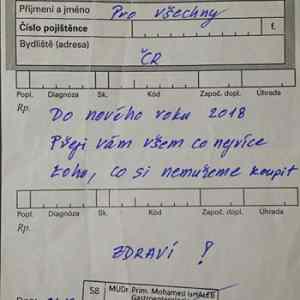 Příjmení a jméno Pro všechny
Číslo pojištěnce f.
Bydliště (adresa)
ČR
Popl. Diagnóza Sk. Kód Započ. dopl. Úhrada
Rp.
Do nového roku 2018
Přeji vám všem co nejvíce
toho, co si nemůžeme koupit
Popl. Diagnóza Sk. Kód Započ. dopl. Úhrada
Rp.
ZDRAVÍ !
58 MUDr. Prim. Mohamed